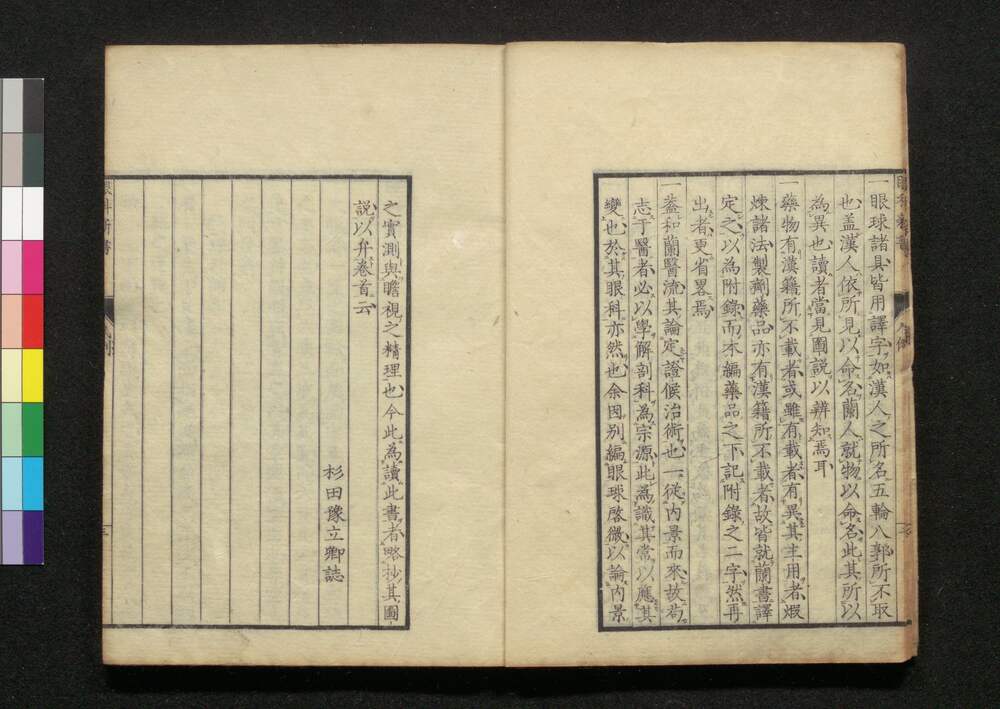 一眼球諸具皆用譯字如漢人之所名五輪八郭所不取
也盖漢人依所見以命名蘭人就物以命名此其所以
為異也讀者當見圖説以辨知焉耳
一藥物有漢籍所不載者或雖有載者有異其主用者煆
煉諸法製劑藥品亦有漢籍所不載者故皆就蘭書譯
定之以為附錄而本編藥品之下記附錄之二字然再
出者更省畧焉
一葢和蘭醫流其論定證候治術也一從内景而來故苟
志于醫者必以學解剖科為宗源此為識其常以應其
變也於其眼科亦然也余因别編眼球啓微以論内景
之實測與瞻視之精理也今此為讀此書者略抄其圖
説以弁卷首云
杉田豫立卿誌
眼科新書